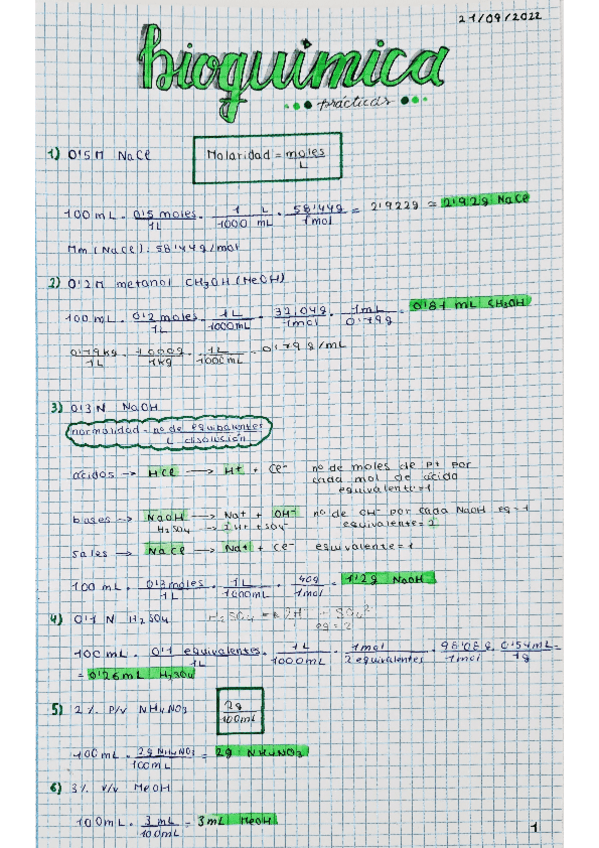 21/09/2022
bioquímica
prácticas
1) 0'5 M NaCl
Molaridad = moles / L
100 mL · 0'5 moles / 1L · 1 L / 1000 mL · 58'44g / 1mol = 2'922g = 2'92g NaCl
Mm (NaCl): 58'44g/mol
2) 0'2M metanol CH₃OH (MeOH)
100 mL · 0'2 moles / 1L · 1L / 1000mL · 32,04g / 1mol · 1mL / 0'79g = 0'81 mL CH₃OH
0'79kg / 1L · 1000g / 1kg · 1L / 1000mL = 0'79 g/mL
3) 0'3 N NaOH
normalidad = nº de equivalentes / L disolución
ácidos → HCl → H+ + Cl- nº de moles de H+ por
cada mol de ácido
equivalente=1
bases → NaOH → Na+ + OH- nº de OH- por cada NaOH eq=1
H₂SO₄ → 2H+ + SO₄- equivalente= 2
sales → NaCl → Na+ + Cl- equivalente=1
100 mL · 0'3 moles / 1L · 1L / 1000mL · 40g / 1mol = 1'2g NaOH
4) 0'1 N H₂SO₄
eq=2
100 mL · 0'1 equivalentes / 1L · 1L / 1000mL · 1mol / 2 equivalentes · 98'08g / 1mol · 0'54mL / 1g =
= 0'26mL H₂SO₄
5) 2% P/V NH₄NO₃
2g / 100mL
100mL · 2g NH₄NO₃ / 100mL = 2g NH₄NO₃
6) 3% V/V MeOH
100mL · 3mL / 100mL = 3mL MeOH
1